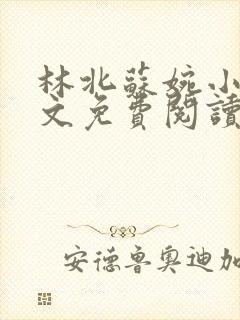 林北蘇婉小
文免費閱讀
安德魯奧迪加